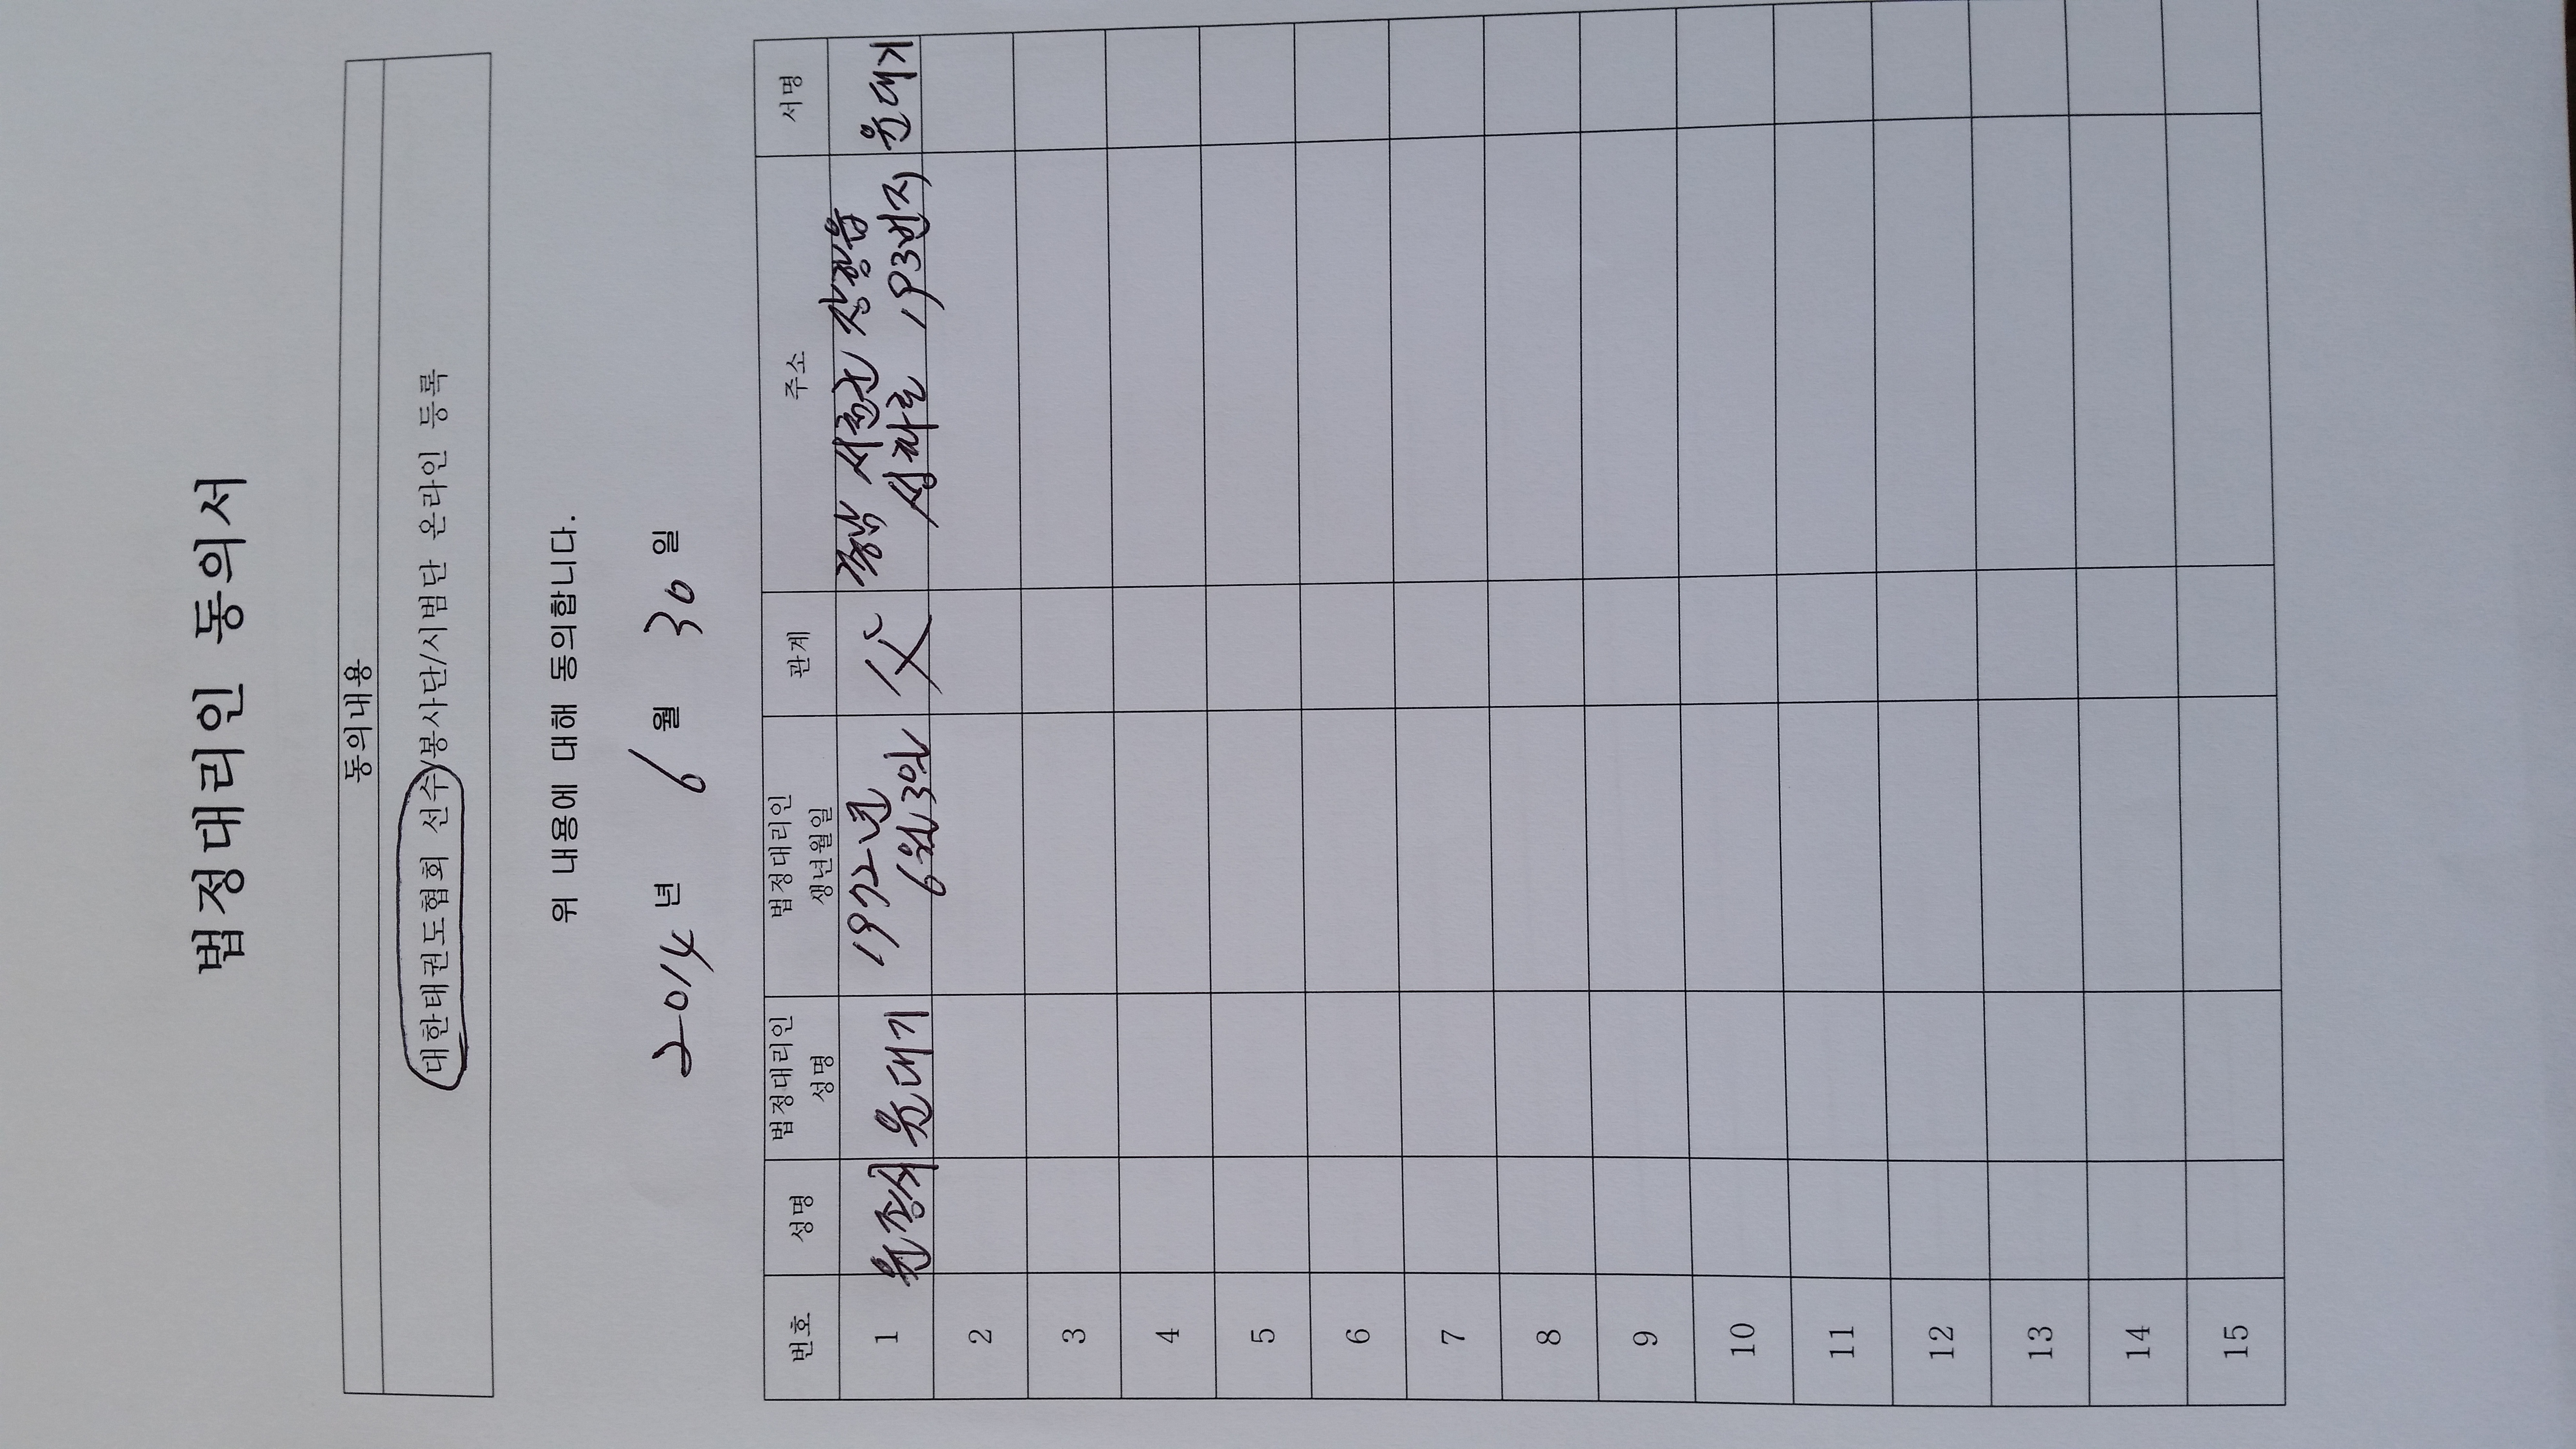 법정대리인 동의서
동의내용
대한태권도협회 선수/봉사단/시범단 온라인 등록
위 내용에 대해 동의합니다.
2014 년 6 월 30 일
번호 성명 법정대리인 성명 법정대리인 생년월일 관계 주소 서명
1 윤종서 윤대기 1972년 6월 3일 父 충남 서천군 장항읍 193번지 윤대기
2
3
4
5
6
7
8
9
10
11
12
13
14
15